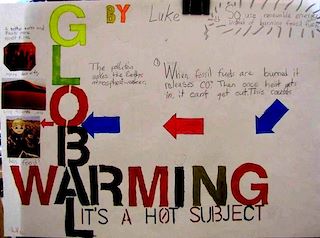 BY Luke
SO use renewable energy
instead of burning fossil fuels
GLOBAL
The pollution
makes the Earths
atmosphere warmer.
When fossil fuels are burned it
releases CO² Then once heat gets
in, it cant get out. This causes
WARMING
IT'S A HOT SUBJECT